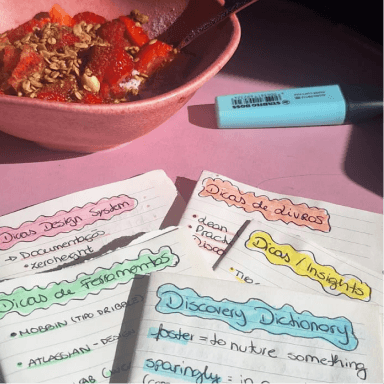 STABILO BOSS
Dicas Design System
→ Documentação
• zeroheight
Dicas de Livros
• Lean
Dicas / Insights
Dicas de Ferramentas
• MOBBIN (TIPO DRIBBLE
• ATLASSIAN - DES
Discovery Dictionary
foster = to nuture something
sparingly = in a